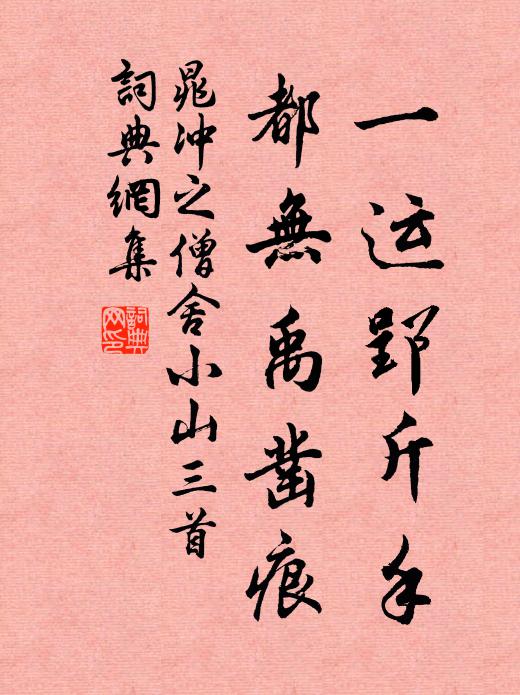 一运郢斤手
都無禹凿痕
晁冲之僧舍小山三首
詞典網集
詞典网印